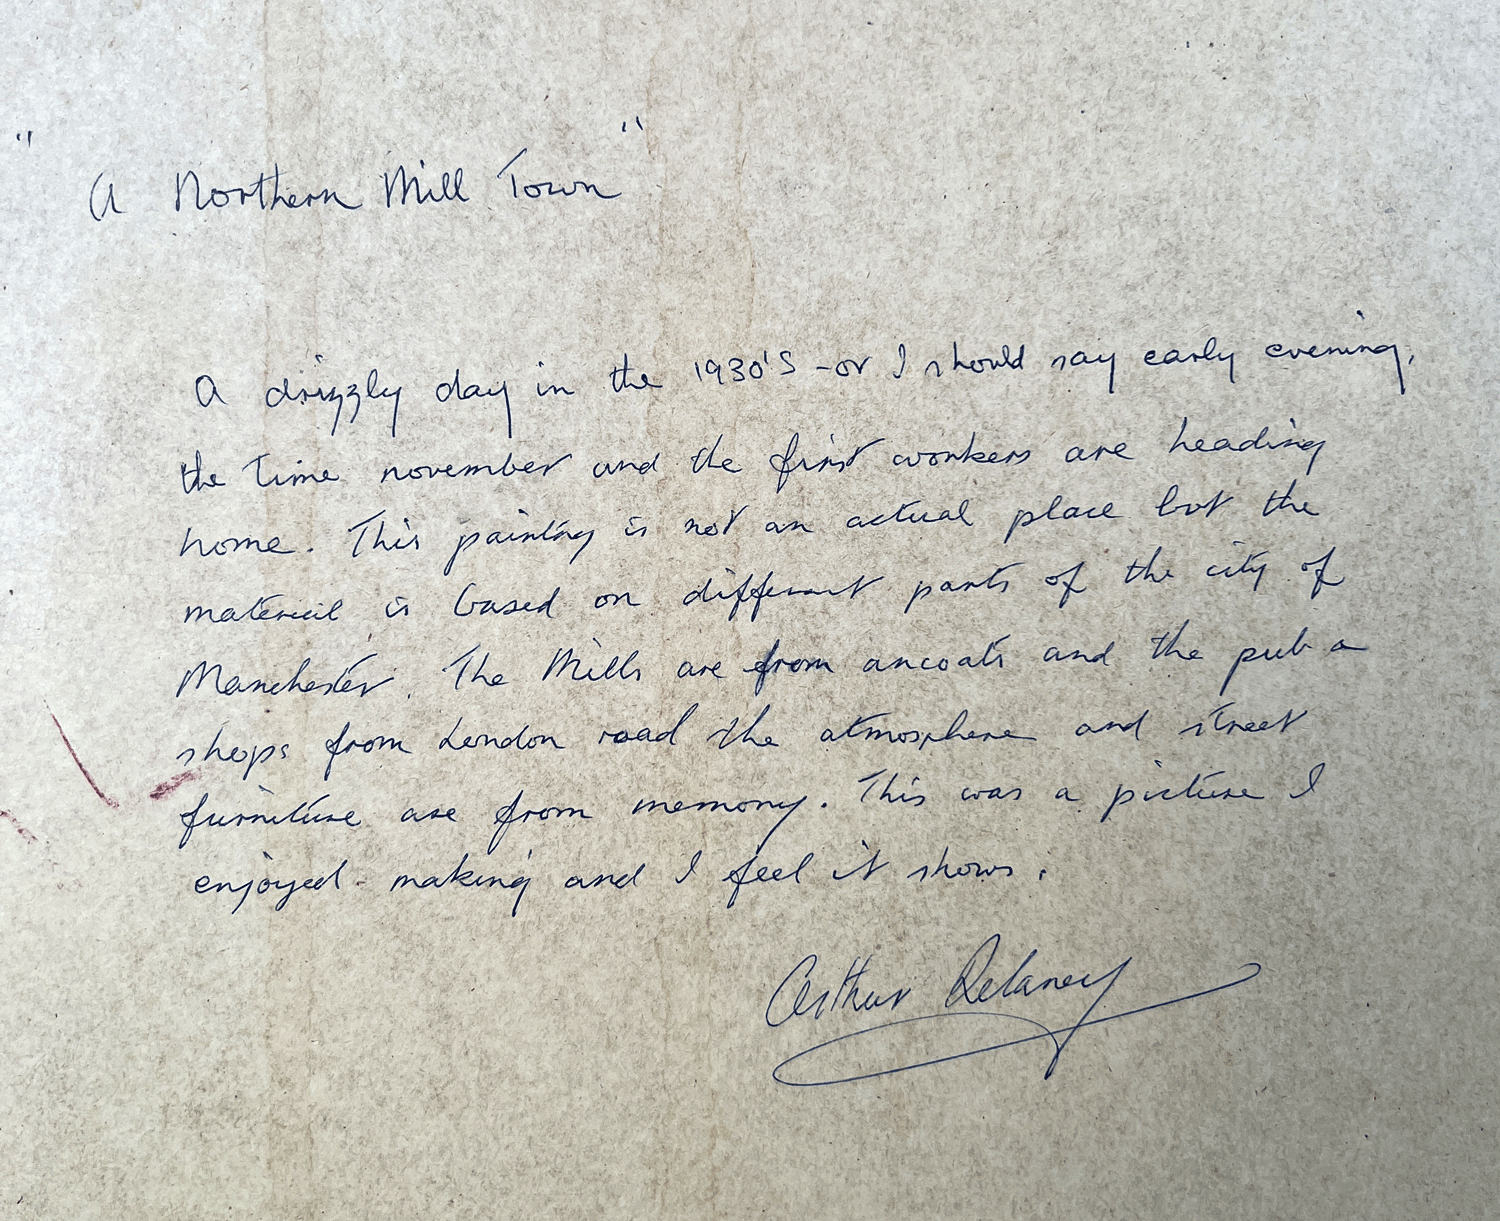 "A Northern Mill Town"
A drizzly day in the 1930's - or I should say early evening,
the time november and the first workers are heading
home. This painting is not an actual place but the
material is based on different parts of the city of
Manchester. The Mills are from ancoats and the pub a
shops from London road the atmosphere and street
furniture are from memory. This was a picture I
enjoyed making and I feel it shows.
Arthur Delaney